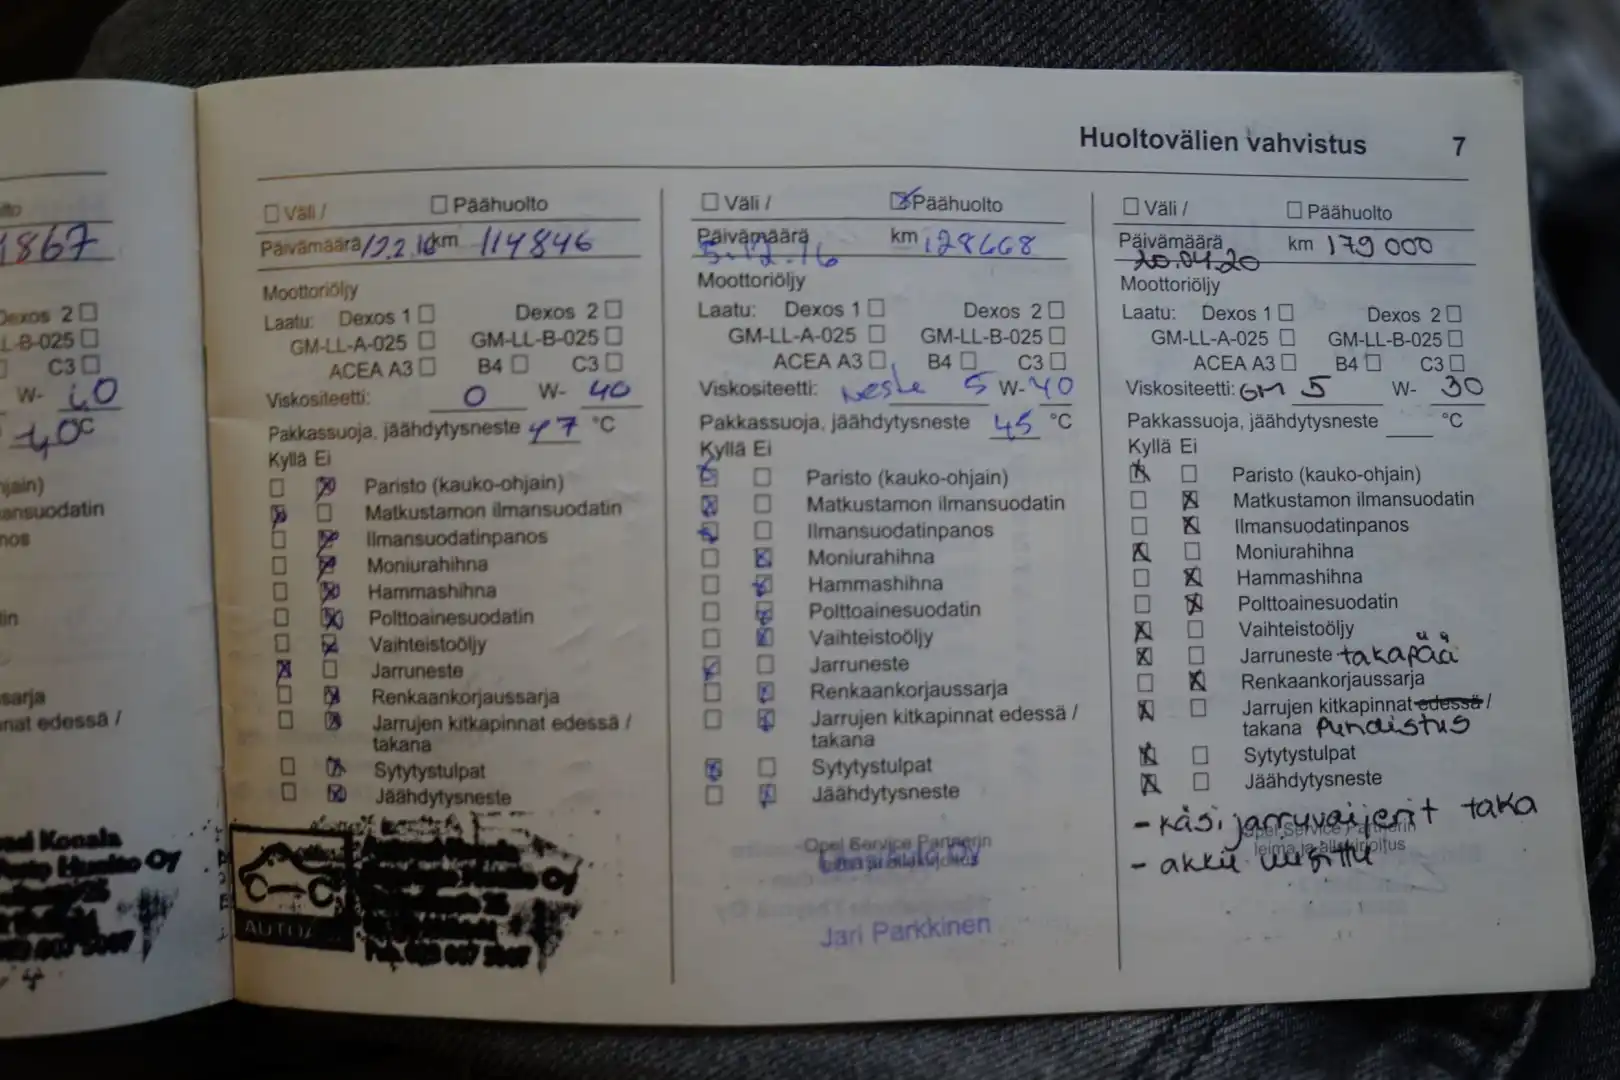 Huoltovälien vahvistus 7
1867
Dexos 2
L-B-025
C3
W- 40
40°C
njain)
ansuodatin
nos
lin
sarja
nat edessä /
Konala
Huolto Oy
Väli / Päähuolto
Päivämäärä 12.2.16 km 114846
Moottoriöljy
Laatu: Dexos 1 Dexos 2
GM-LL-A-025 GM-LL-B-025
ACEA A3 B4 C3
Viskositeetti: 0 W- 40
Pakkassuoja, jäähdytysneste 47 °C
Kyllä Ei
Paristo (kauko-ohjain)
Matkustamon ilmansuodatin
Ilmansuodatinpanos
Moniurahihna
Hammashihna
Polttoainesuodatin
Vaihteistoöljy
Jarruneste
Renkaankorjaussarja
Jarrujen kitkapinnat edessä /
takana
Sytytystulpat
Jäähdytysneste
Huolto Oy
Väli / Päähuolto
Päivämäärä km 128668
5.12.16
Moottoriöljy
Laatu: Dexos 1 Dexos 2
GM-LL-A-025 GM-LL-B-025
ACEA A3 B4 C3
Viskositeetti: Neste 5 W-40
Pakkassuoja, jäähdytysneste 45 °C
Kyllä Ei
Paristo (kauko-ohjain)
Matkustamon ilmansuodatin
Ilmansuodatinpanos
Moniurahihna
Hammashihna
Polttoainesuodatin
Vaihteistoöljy
Jarruneste
Renkaankorjaussarja
Jarrujen kitkapinnat edessä /
takana
Sytytystulpat
Jäähdytysneste
Opel Service Partnerin
Jari Parkkinen
Väli / Päähuolto
Päivämäärä km 179 000
20.04.20
Moottoriöljy
Laatu: Dexos 1 Dexos 2
GM-LL-A-025 GM-LL-B-025
ACEA A3 B4 C3
Viskositeetti: GM 5 W- 30
Pakkassuoja, jäähdytysneste °C
Kyllä Ei
Paristo (kauko-ohjain)
Matkustamon ilmansuodatin
Ilmansuodatinpanos
Moniurahihna
Hammashihna
Polttoainesuodatin
Vaihteistoöljy
Jarruneste takapää
Renkaankorjaussarja
Jarrujen kitkapinnat edessä /
takana Puhdistus
Sytytystulpat
Jäähdytysneste
- käsijarruvaijerit taka
Opel Service Partnerin
leima ja allekirjoitus
- akku uusittu